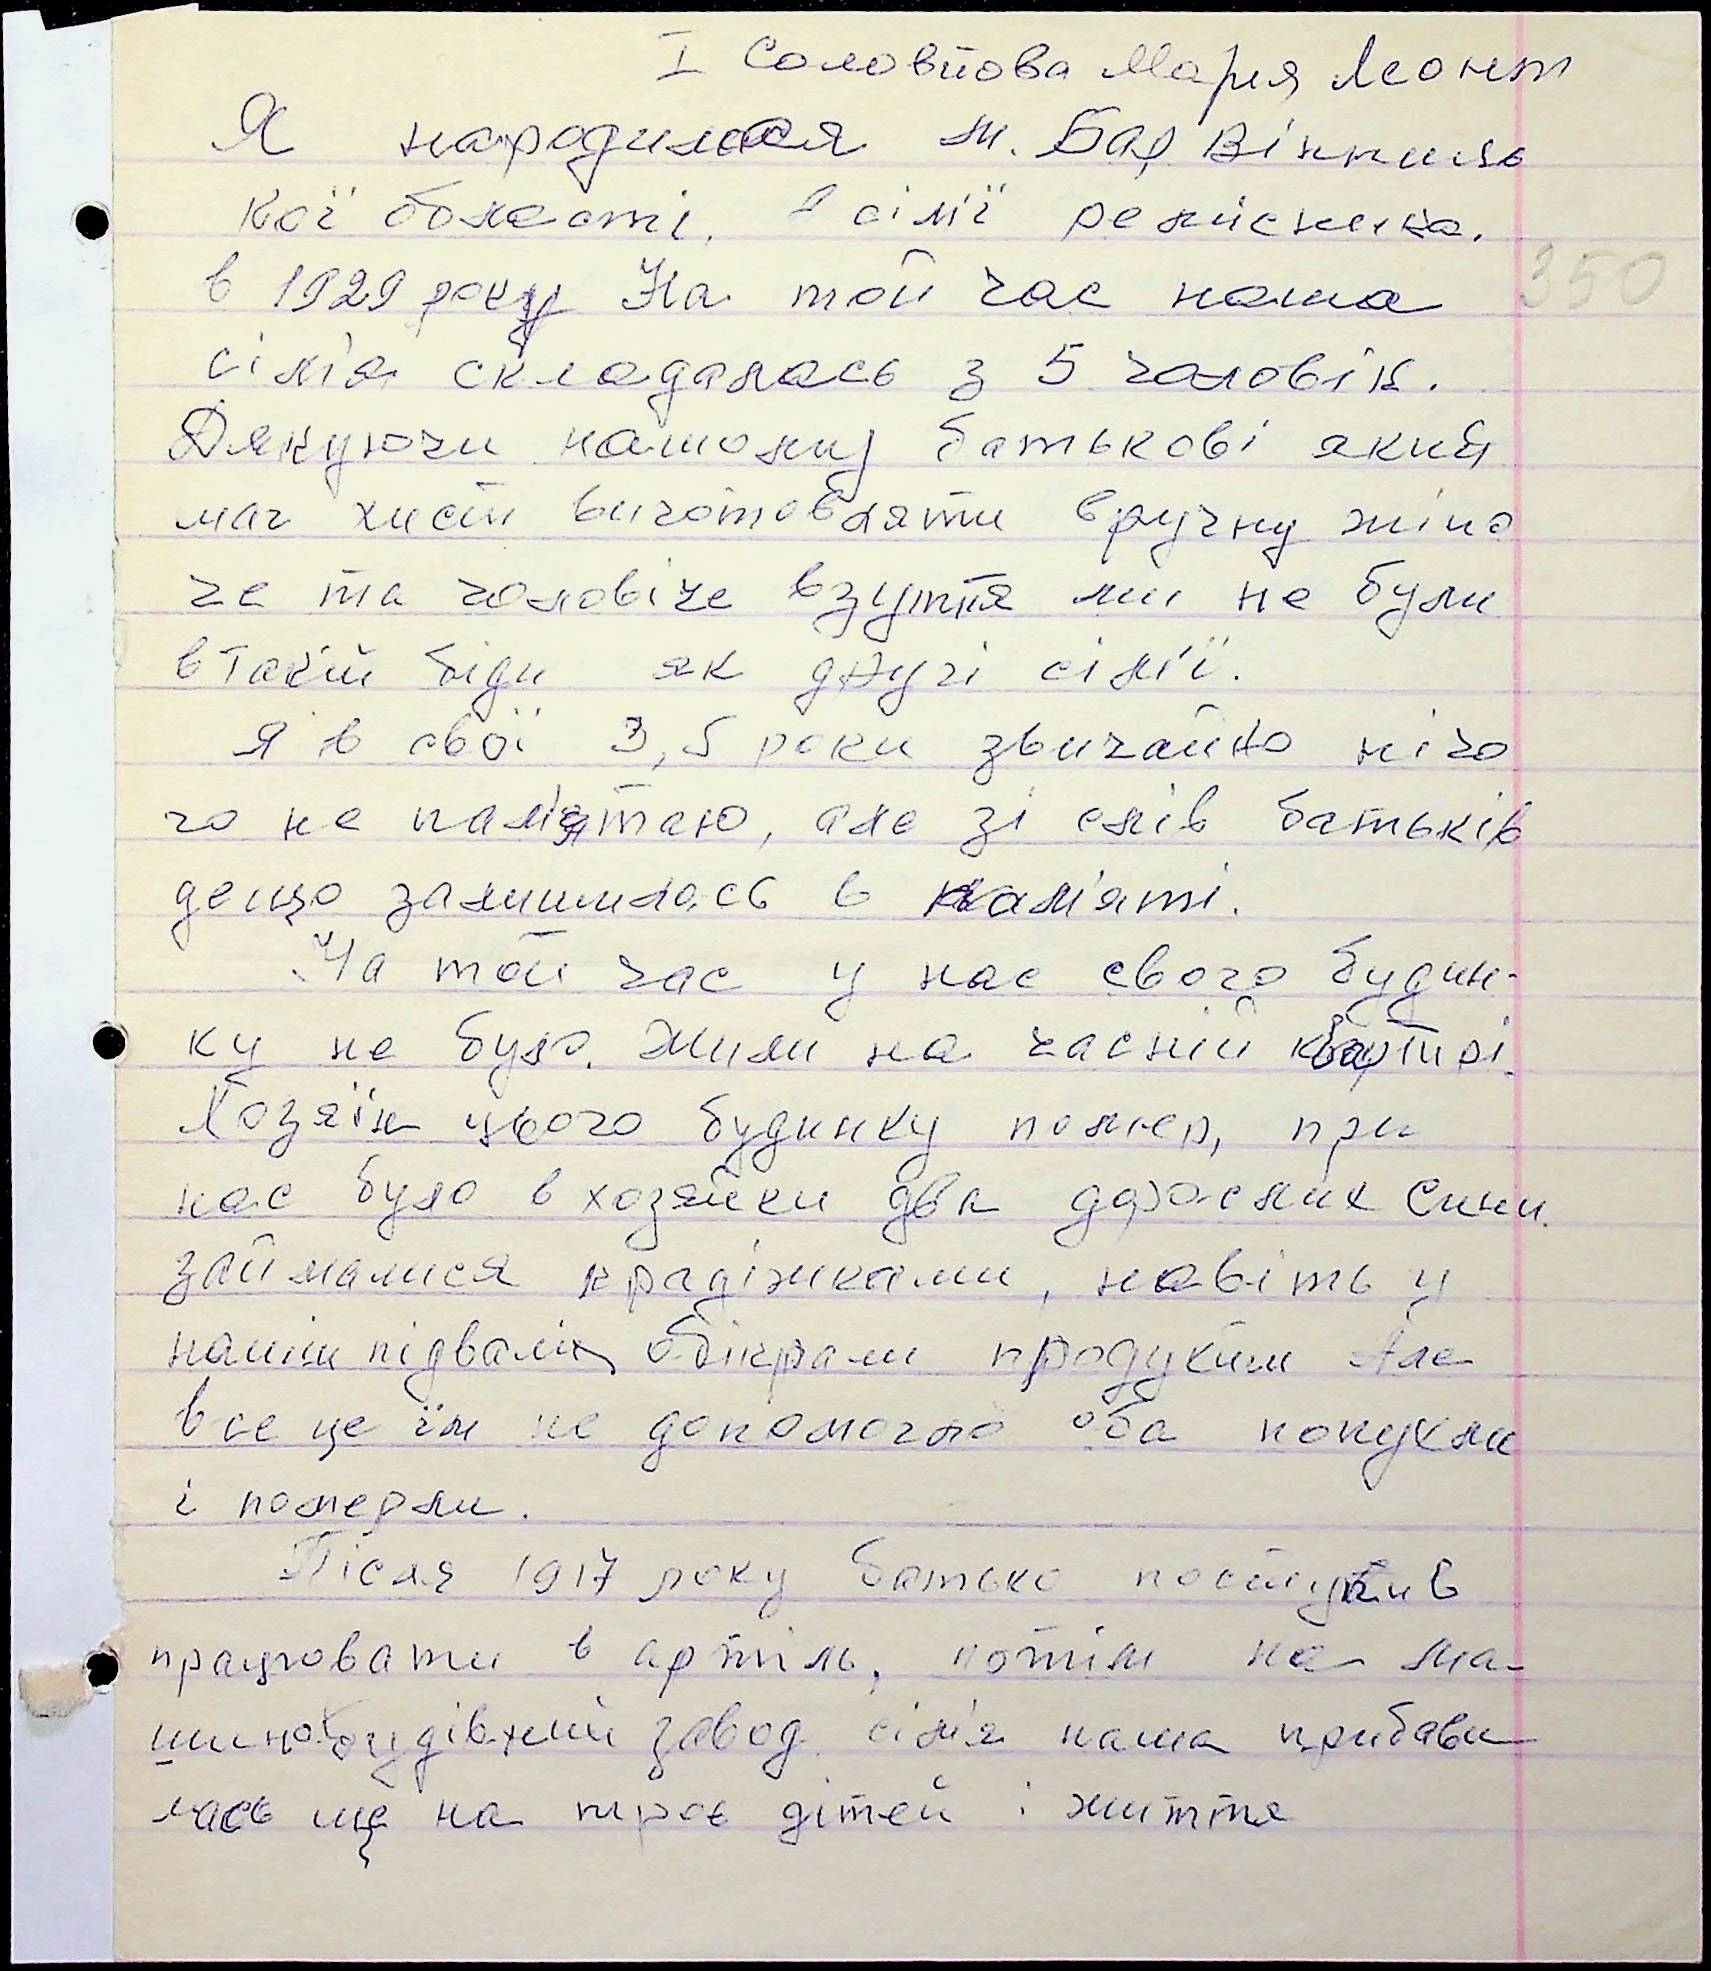 I Соловйова Мария Леонт
Я народилася м. Бар Вінниць
кої області. В сім'ї ремісника.
в 1929 року На той час наша
сім'я складалась з 5 чоловік.
Дякуючи нашому батькові який
мав хист виготовляти вручну жіно
че та чоловіче взуття ми не були
в такій біди як другі сім'ї.
Я в свої 3,5 роки звичайно нічо
го не пам'ятаю, але зі слів батьків
дещо залишилось в пам'яті.
На той час у нас свого будин-
ку не було. Жили на часній квартирі.
Хозяїн цього будинку помер, при
нас було в хозяйки два дорослих сини.
займалися крадіжками, навіть у
наший підвалі обікрали продукти Але
все це їм не допомогло оба попухли
і померли.
Після 1917 року батько поступив
працювати в артіль, потім на ма-
шинобудівний завод. сім'я наша прибави
лась ще на троє дітей і життя
350